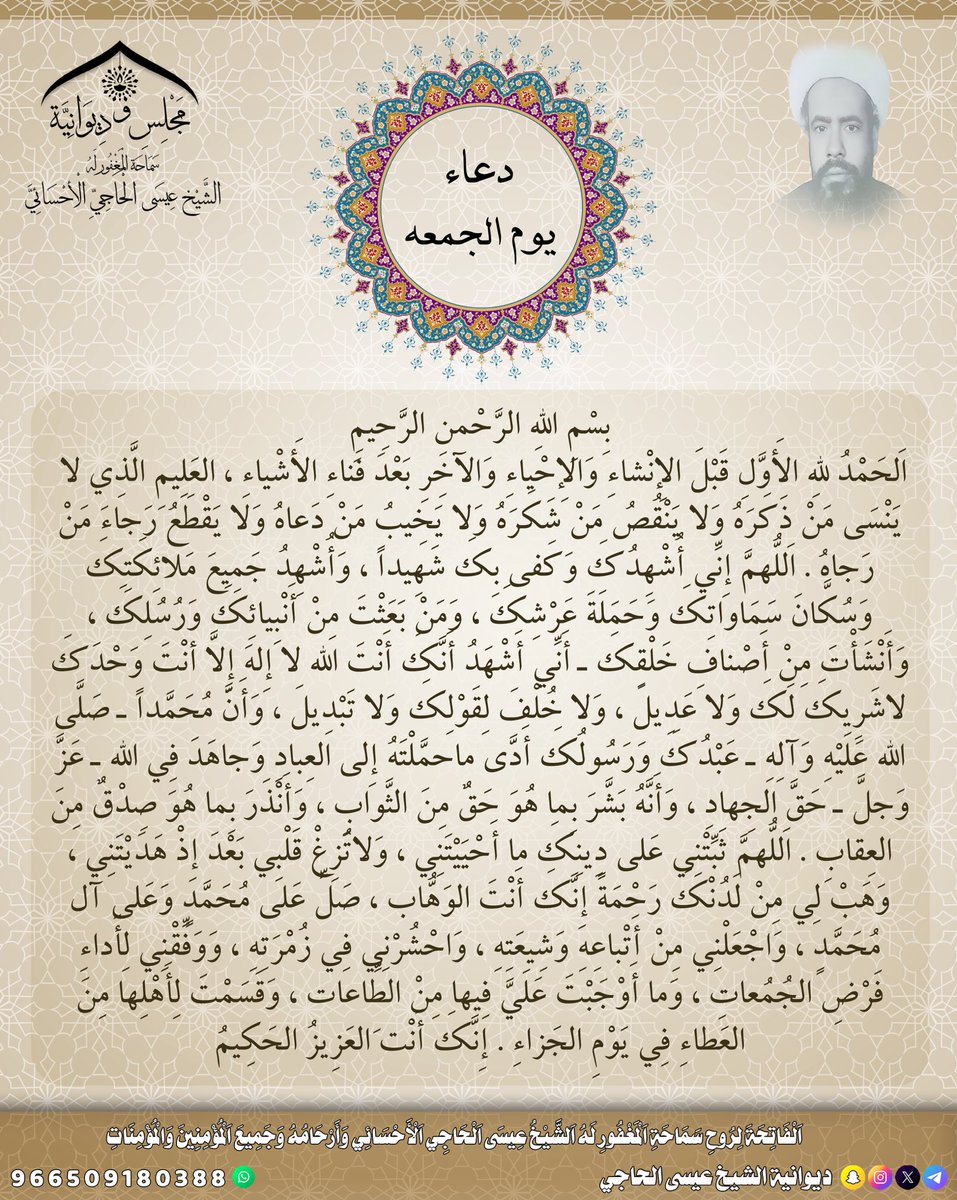 مَجْلِس و دِيوَانِيَّة
سَمَاحَة المَغْفُور لَهُ
الشَّيْخ عِيسَى الْحَاجِيّ الْأَحْسَائِيّ
دعاء
يوم الجمعه
بِسْمِ اللهِ الرَّحْمنِ الرَّحِيمِ
اَلحَمْدُ للهِ الأَوَّلِ قَبْلَ الإنْشاءِ وَالإحْياءِ وَالآخَرِ بَعْدَ فَناءِ الأَشْياءِ ، العَلِيمِ الَّذِي لا
يَنْسَى مَنْ ذَكَرَهُ وَلا يَنْقُصُ مَنْ شَكَرَهُ وَلا يَخِيبُ مَنْ دَعاهُ وَلا يَقْطَعُ رَجاءَ مَنْ
رَجاهُ . اَللّهُمَّ إنِّي أُشْهِدُكَ وَكَفى بِكَ شَهِيداً ، وَأُشْهِدُ جَمِيعَ مَلائِكَتِكَ
وَسُكّانَ سَمَاوَاتِكَ وَحَمَلَةَ عَرْشِكَ ، وَمَنْ بَعَثْتَ مِنْ أَنْبِيائِكَ وَرُسُلِكَ ،
وَأَنْشَأْتَ مِنْ أصْنافِ خَلْقِكَ ـ أنِّي أشْهَدُ أنَّكَ أنْتَ الله لا إلهَ إلاَّ أنْتَ وَحْدَكَ
لاشَرِيكَ لَكَ وَلا عَدِيلَ ، وَلا خُلْفَ لِقَوْلِكَ وَلا تَبْدِيلَ ، وَأنَّ مُحَمَّداً ـ صَلَّى
الله عَلَيْهِ وَآلِهِ ـ عَبْدُكَ وَرَسُولُكَ أدَّى ماحمَّلْتَهُ إلى العِبادِ وَجاهَدَ فِي الله ـ عَزَّ
وَجلَّ ـ حَقَّ الجِهادِ ، وَأنَّهُ بَشَّرَ بِما هُوَ حَقٌ مِنَ الثَّوَابِ ، وَأنْذَرَ بِما هُوَ صِدْقٌ مِنَ
العِقابِ . اَللّهُمَّ ثَبِّتْنِي عَلى دِينِكَ ما أحْيَيْتَنِي ، وَلاتُزِغْ قَلْبِي بَعْدَ إذْ هَدَيْتَنِي ،
وَهَبْ لِي مِنْ لَدُنْكَ رَحْمَةً إنَّكَ أنْتَ الوَهُّاب ، صَلِّ عَلَى مُحَمَّدٍ وَعَلى آل
مُحَمَّدٍ ، وَاجْعَلْنِي مِنْ أتْباعِهِ وَشِيعَتِهِ ، وَاحْشُرْنِي فِي زُمْرَتِهِ ، وَوَفِّقْنِي لِأَداءِ
فَرْضِ الجُمُعاتِ ، وَما أوْجَبْتَ عَلَيَّ فِيها مِنْ الطّاعات ، وَقَسَمْتَ لِأَهْلِها مِنَ
العَطاءِ فِي يَوْمِ الجَزاءِ . إنَّكَ أنْت َالعَزِيزُ الحَكِيمُ
اَلْفَاتِحَة لِرُوحِ سَمَاحَةِ اَلْمَغْفُورِ لَهُ اَلشَّيْخُ عِيسَى اَلْحَاجِي اَلْأَحْسَائِي وَأَرْحَامُهُ وَجَمِيعَ اَلْمُؤْمِنِينَ وَالْمُؤْمِنَاتِ
ديوانية الشيخ عيسى الحاجي
966509180388